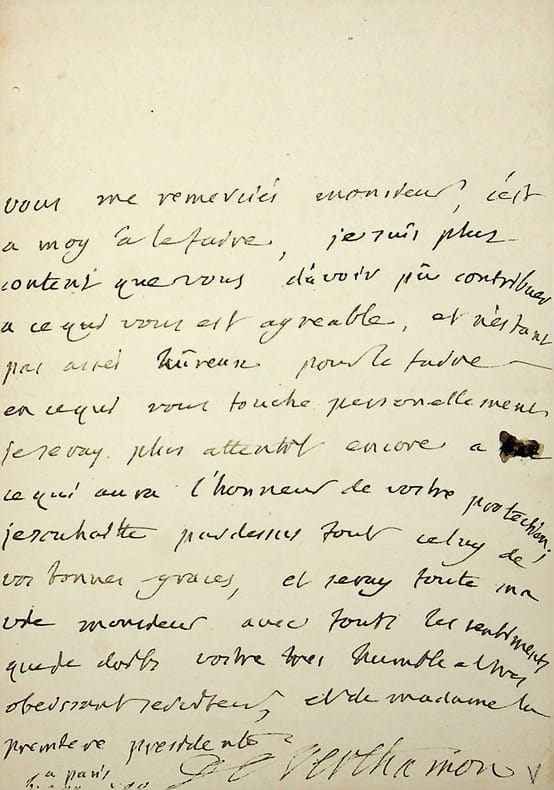 vous me remerciés monsieur, c'est
a moy a le faire, je suis plus
content que vous d'avoir pû contribuer
a ce qui vous est agreable, et n'estant
pas assés hûreux pour le faire
en ce qui vous touche personellement
je seray plus attentif encore a
ce qui aura l'honneur de vostre protection;
je souhaitte par dessus tout celuy de
vos bonnes graces, et seray toute ma
vie monsieur avec touts les sentiments
que je doibs vostre tres humble et tres
obeissant serviteur, et de madame la
premiere presidente
De Verthamon
a paris